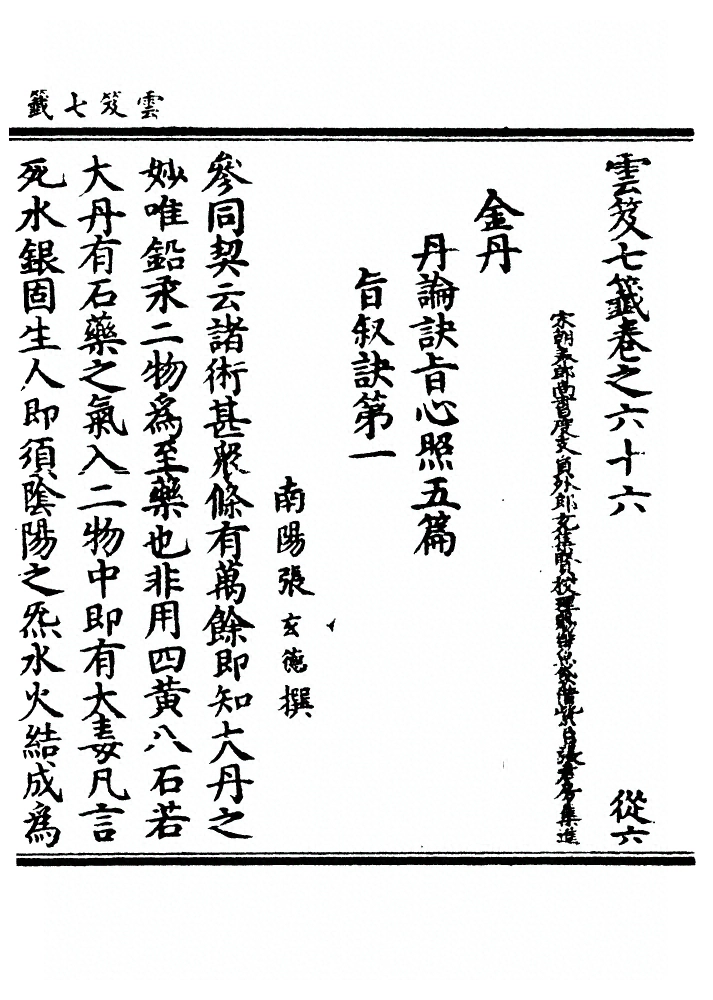 雲笈七籤
雲笈七籤卷之六十六 從六
宋朝奉郎尚書度支員外郎充集賢校理賜緋魚袋借紫臣張君房集進
金丹
丹論訣旨心照五篇
旨叙訣第一
南陽張玄德撰
參同契云諸術甚衆條有萬餘即知大丹之
妙唯鉛汞二物爲至藥也非用四黃八石若
大丹有石藥之氣入二物中即有大毒凡言
死水銀固生人即須陰陽之炁水火結成爲